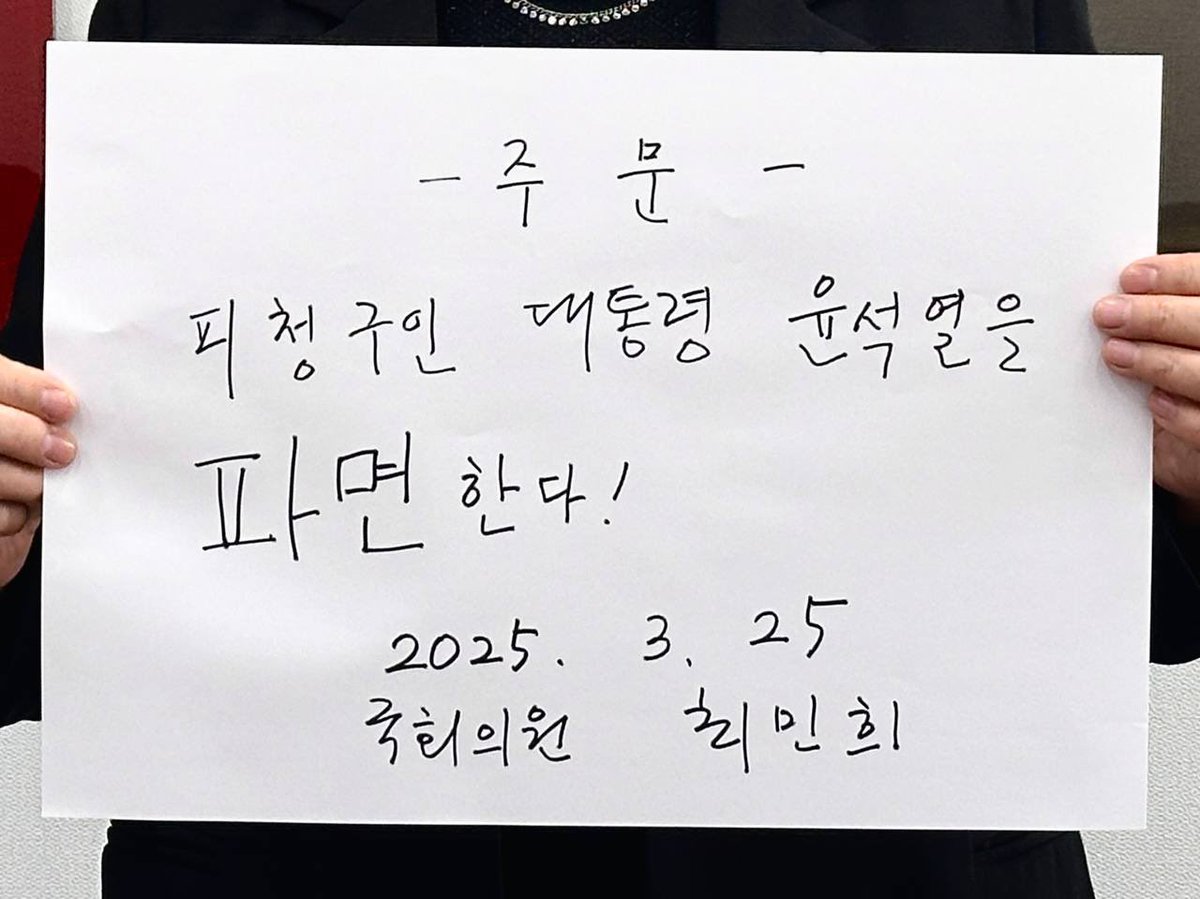 - 주 문 -
피청구인 대통령 윤석열을
파면한다!
2025. 3. 25
국회의원 최민희